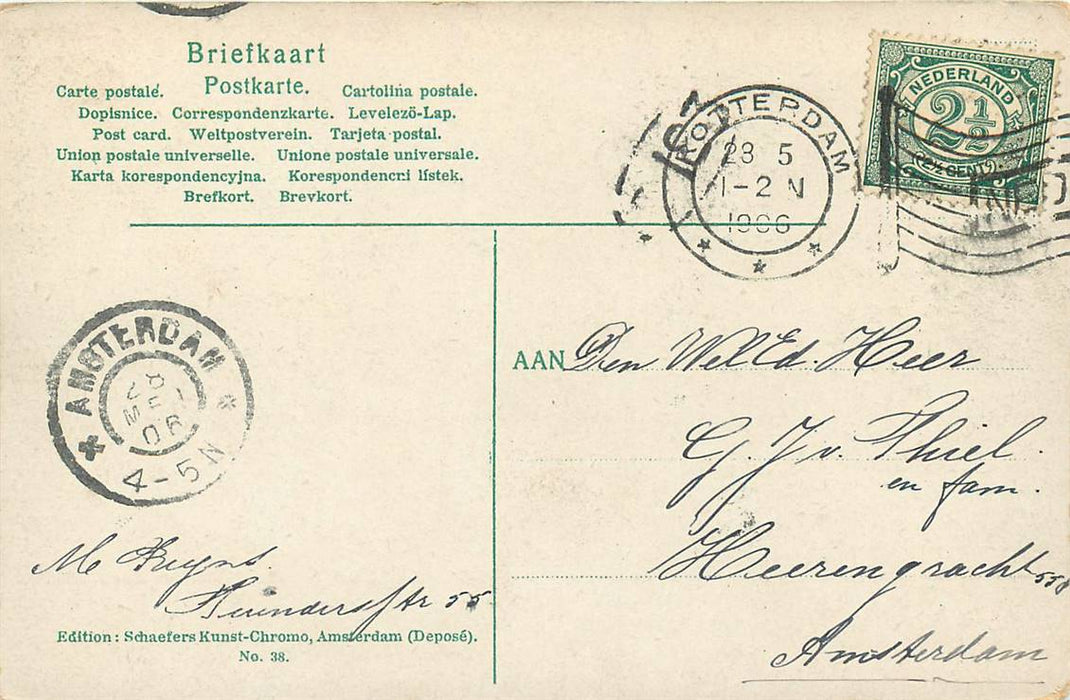 Briefkaart
Postkarte.
Carte postale. Cartolina postale.
Dopisnice. Correspondenzkarte. Levelező-Lap.
Post card. Weltpostverein. Tarjeta postal.
Union postale universelle. Unione postale universale.
Karta korespondencyjna. Korespondencni lístek.
Brefkort. Brevkort.
ROTTERDAM
28 5
1-2 N
1906
NEDERLAND
2½
(2½ CENT)
AMSTERDAM
28
MEI
06
4-5N
AAN Den WelEd. Heer
G. J. v. Thiel.
en fam.
Heerengracht 558
Amsterdam
M
str 55
Edition: Schaefers Kunst-Chromo, Amsterdam (Deposé).
No. 38.